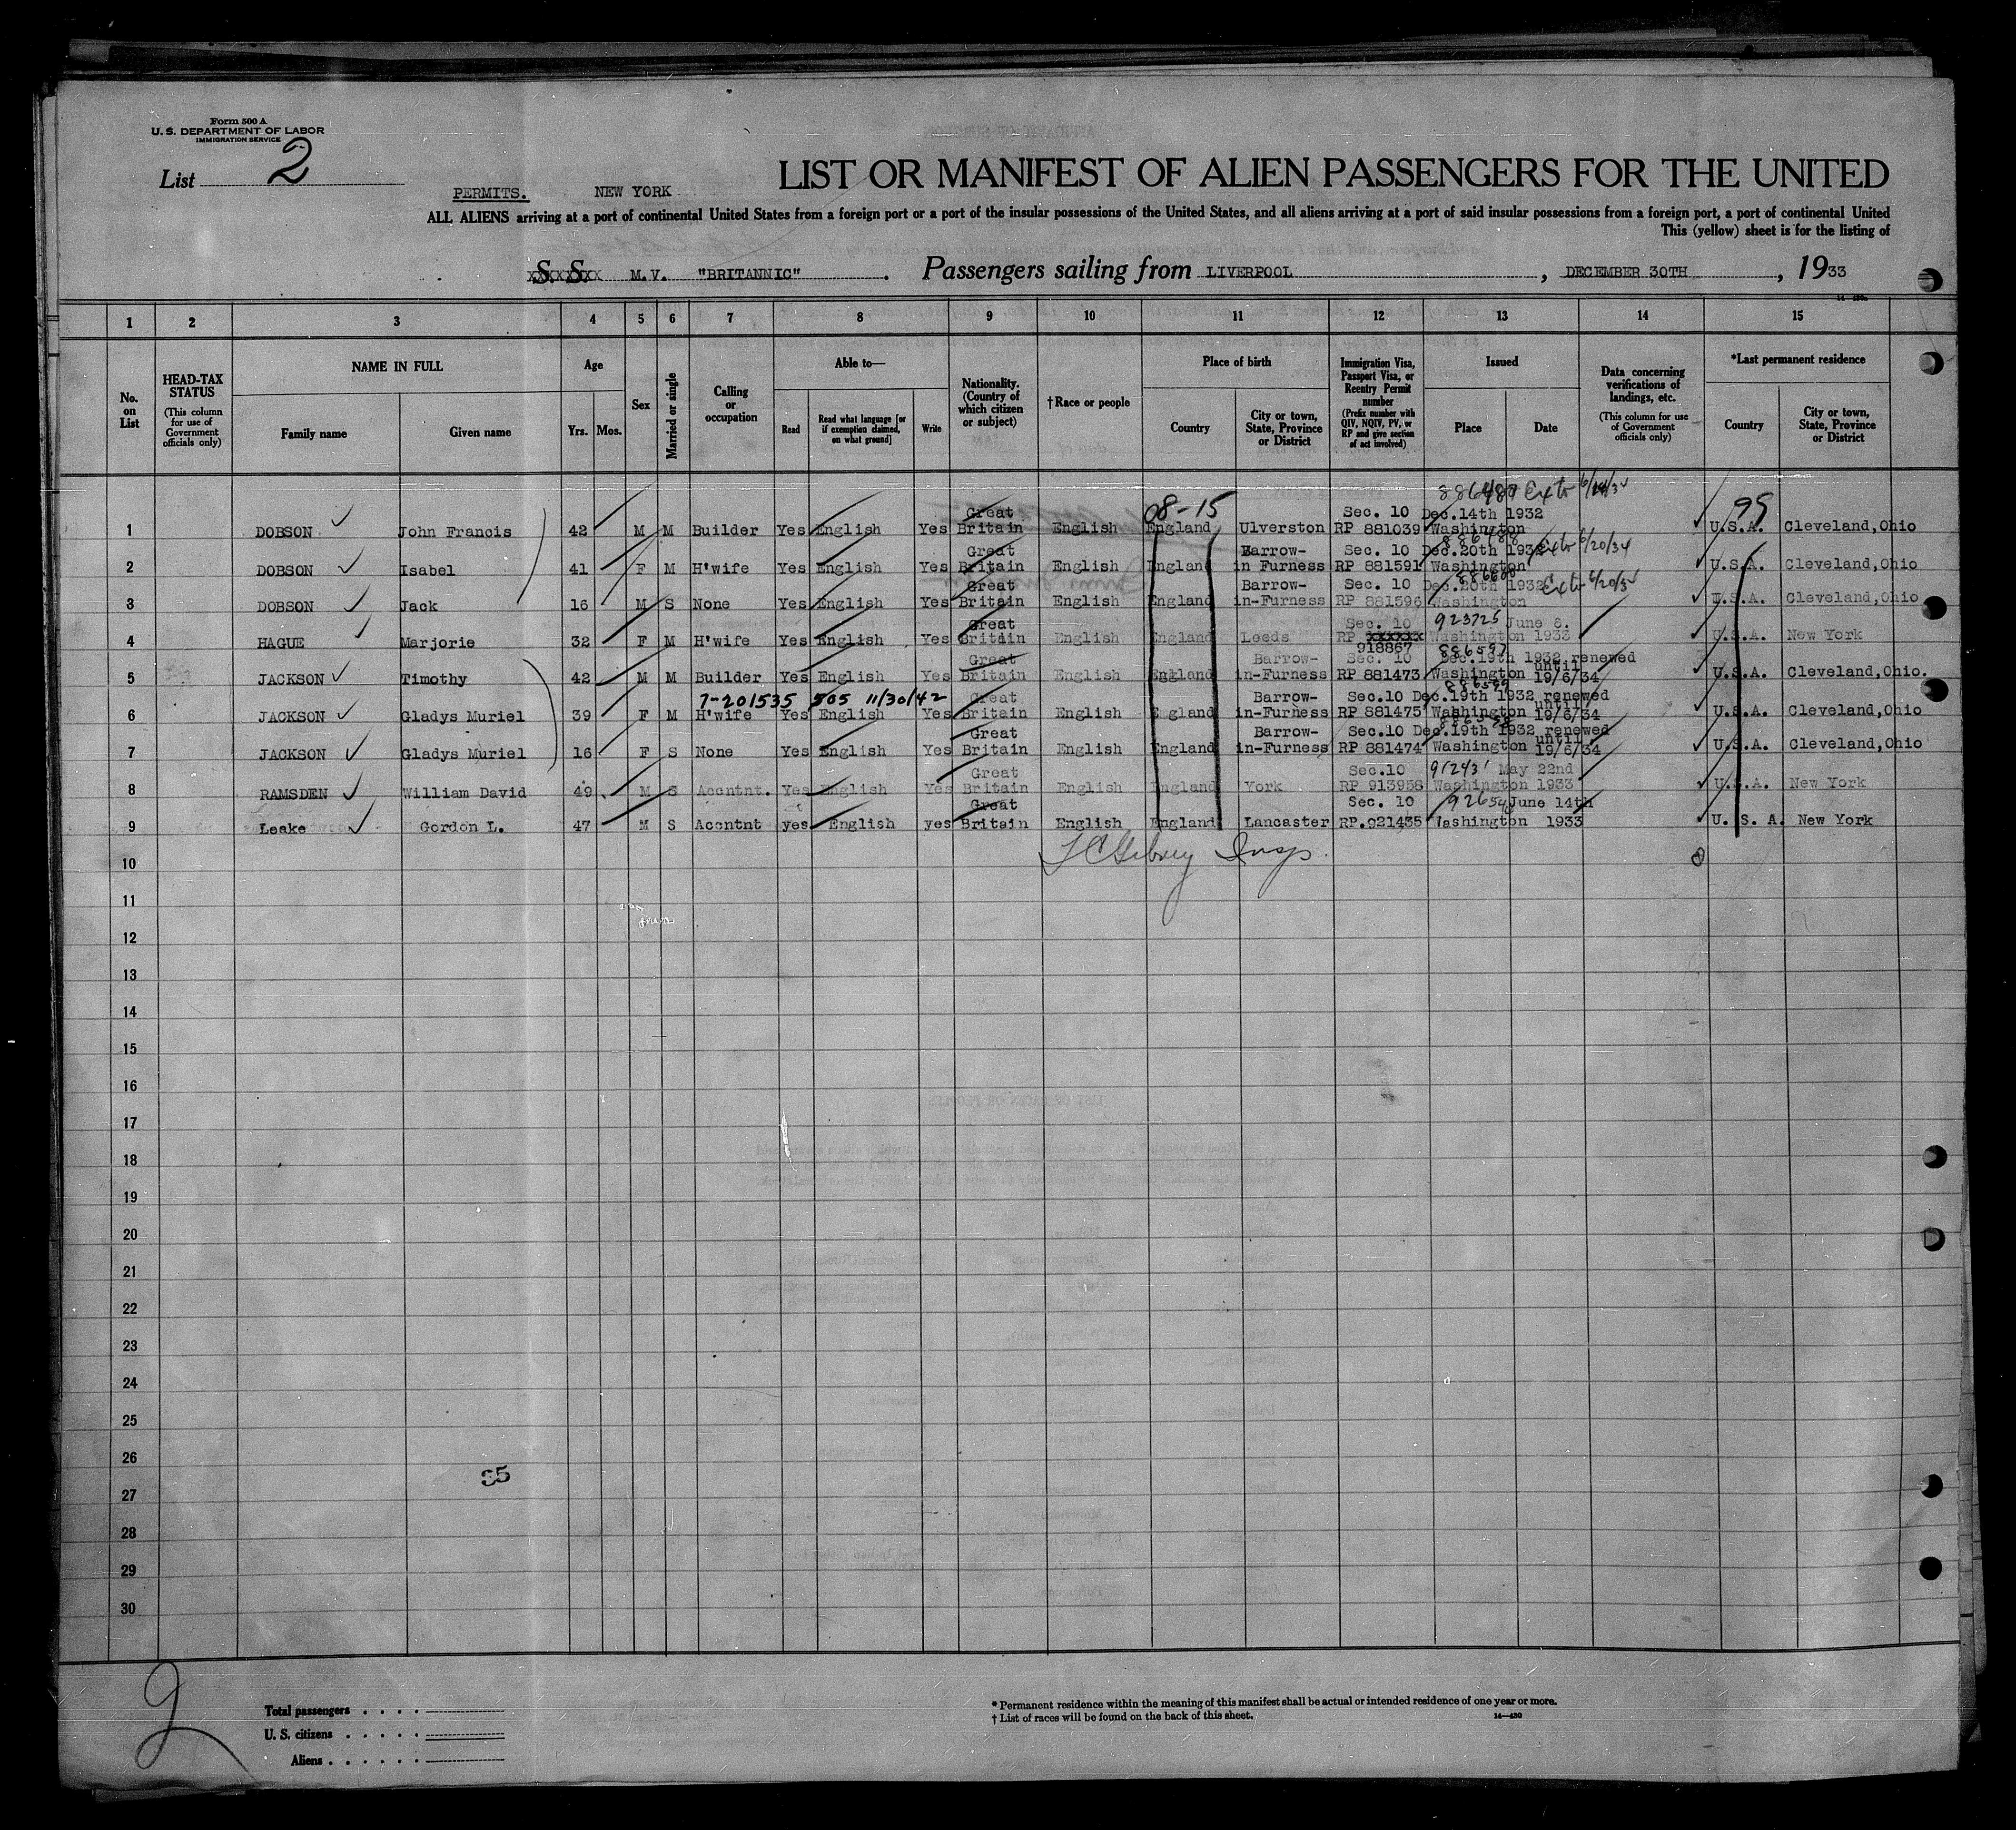 Form 500 A
U. S. DEPARTMENT OF LABOR
IMMIGRATION SERVICE
List 2
PERMITS. NEW YORK
LIST OR MANIFEST OF ALIEN PASSENGERS FOR THE UNITED
ALL ALIENS arriving at a port of continental United States from a foreign port or a port of the insular possessions of the United States, and all aliens arriving at a port of said insular possessions from a foreign port, a port of continental United
This (yellow) sheet is for the listing of
S. S. M.V. "BRITANNIC" . Passengers sailing from LIVERPOOL , DECEMBER 30TH , 1933
1 2 3 4 5 6 7 8 9 10 11 12 13 14 15
No. on List
HEAD-TAX STATUS (This column for use of Government officials only)
NAME IN FULL Family name Given name
Age Yrs. Mos.
Sex
Married or single
Calling or occupation
Able to— Read Read what language [or if exemption claimed, on what ground] Write
Nationality. (Country of which citizen or subject)
†Race or people
Place of birth Country City or town, State, Province or District
Immigration Visa, Passport Visa, or Reentry Permit number (Prefix number with QIV, NQIV, PV, or RP and give section of act involved)
Issued Place Date
Data concerning verifications of landings, etc. (This column for use of Government officials only)
*Last permanent residence Country City or town, State, Province or District
08-15 99
1 DOBSON John Francis 42 M M Builder Yes English Yes Great Britain English England Ulverston Sec. 10 RP 881039 Washington Dec.14th 1932 U.S.A. Cleveland,Ohio
2 DOBSON Isabel 41 F M H'wife Yes English Yes Great Britain English England Barrow-in Furness Sec. 10 RP 881591 Washington Dec.20th 1932 Ext 6/20/34 U.S.A. Cleveland,Ohio
3 DOBSON Jack 16 M S None Yes English Yes Great Britain English England Barrow-in-Furness Sec. 10 RP 881596 Washington Dec.20th 1932 Ext 6/20/34 U.S.A. Cleveland,Ohio
4 HAGUE Marjorie 32 F M H'wife Yes English Yes Great Britain English England Leeds Sec. 10 RP xxxxxx 918867 923725 Washington June 8. 1933 U.S.A. New York
5 JACKSON Timothy 42 M M Builder Yes English Yes Great Britain English England Barrow-in-Furness Sec. 10 RP 881473 886597 Washington Dec.19th 1932 renewed until 19/6/34 U.S.A. Cleveland,Ohio.
7-201535 505 11/30/42
6 JACKSON Gladys Muriel 39 F M H'wife Yes English Yes Great Britain English England Barrow-in-Furness Sec.10 RP 881475 Washington Dec.19th 1932 renewed until 19/6/34 U.S.A. Cleveland,Ohio
7 JACKSON Gladys Muriel 16 F S None Yes English Yes Great Britain English England Barrow-in-Furness Sec.10 RP 881474 Washington Dec.19th 1932 renewed until 19/6/34 U.S.A. Cleveland,Ohio
8 RAMSDEN William David 49 M S Accntnt. Yes English Yes Great Britain English England York Sec.10 RP 913958 Washington May 22nd 1933 U.S.A. New York
9 Leake Gordon L. 47 M S Accntnt yes English yes Great Britain English England Lancaster Sec. 10 RP.921435 Washington June 14th 1933 U. S. A. New York
10
11
12
13
14
15
16
17
18
19
20
21
22
23
24
25
26
35
27
28
29
30
2
Total passengers . . . .
U. S. citizens . . . . .
Aliens . . . . . .
* Permanent residence within the meaning of this manifest shall be actual or intended residence of one year or more.
† List of races will be found on the back of this sheet. 14—430